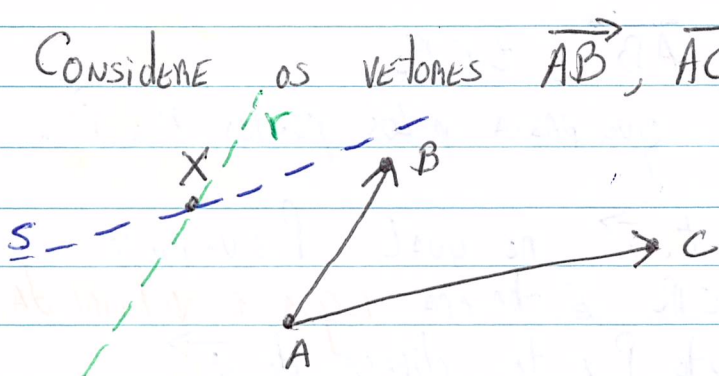 Considere os vetores AB, AC
r
X
B
S
C
A